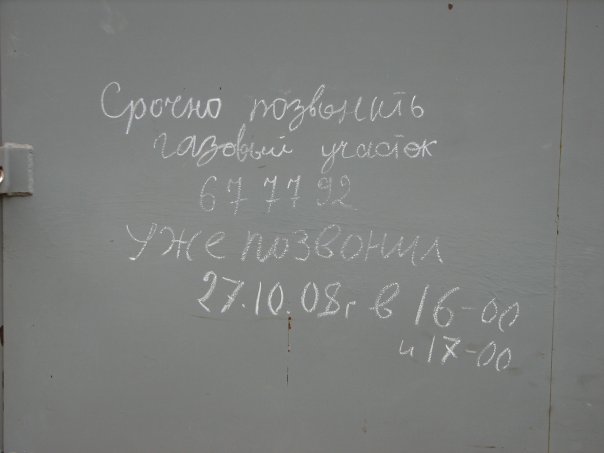 Срочно позвонить
газовый участок
677792
Уже позвонил
27.10.08г в 16-00
и 17-00